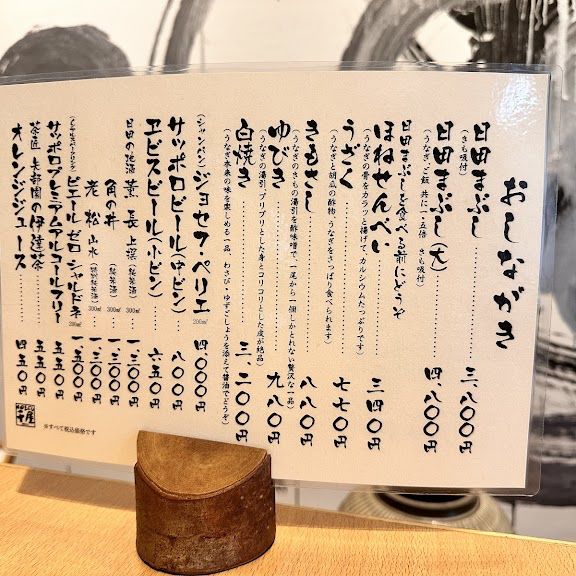 おしながき
日田まぶし……………三、八〇〇円
（きも吸付）
日田まぶし（大）……四、八〇〇円
（うなぎ、ご飯 共に一・五倍 きも吸付）
日田まぶしを食べる前にどうぞ
ほねせんべい……………三四〇円
（うなぎの骨をカラッと揚げて、カルシウムたっぷりです）
うざく……………七七〇円
（うなぎと胡瓜の酢物、うなぎをさっぱり食べられます）
きもさし……………八八〇円
（うなぎのきもの湯引を酢味噌で、一尾から一個しかとれない贅沢な一品）
ゆびき……………九八〇円
（うなぎの湯引、プリプリとした身とコリコリとした皮が絶品）
白焼き……………三、二〇〇円
（うなぎ本来の味を楽しめる一品 わさび・ゆずこしょうを添えて醤油でどうぞ）
（シャンパン）ジョセフ・ペリエ 200㎖ 四、〇〇〇円
サッポロビール（中ビン）……八〇〇円
ヱビスビール（小ビン）……六五〇円
日田の地酒 薫長 上撰（純米酒）300㎖ 一、三〇〇円
角の井（純米酒）300㎖ 一、三〇〇円
老松 山水（特別純米酒）300㎖ 一、三〇〇円
（ノンアルスパークリング）ピエール ゼロ シャルドネ 200㎖ 一、五〇〇円
サッポロプレミアムアルコールフリー……五五〇円
茶匠 矢部園の伊達茶……五五〇円
オレンジジュース……四五〇円
※すべて税込価格です